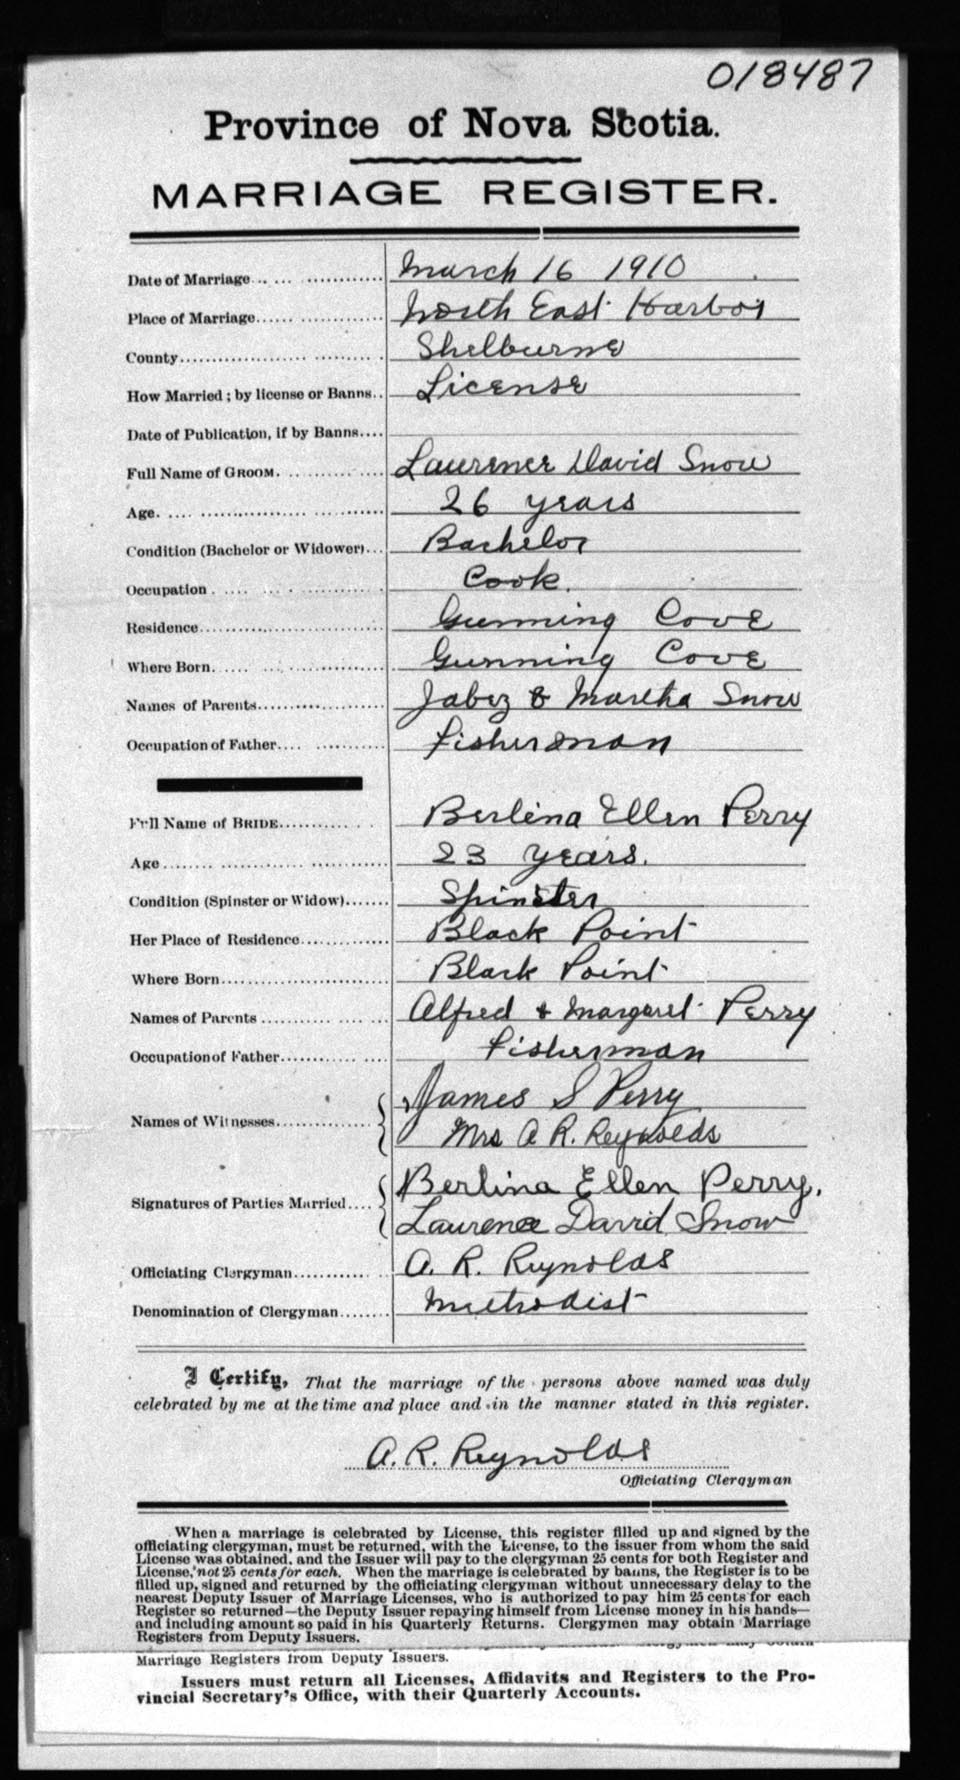 018487
Province of Nova Scotia.
MARRIAGE REGISTER.
Date of Marriage... ... ............... March 16 1910
Place of Marriage...................... North East Harbor
County................. ............ Shelburne
How Married; by license or Banns.. License
Date of Publication, if by Banns....
Full Name of GROOM. ................. Laurence David Snow
Age. .... ................. ............ 26 years
Condition (Bachelor or Widower)... Bachelor
Occupation . .... ... . ............... Cook.
Residence............................... Gunning Cove
Where Born...... ...... ............... Gunning Cove
Names of Parents..................... Jabez & Martha Snow
Occupation of Father.... ........... Fisherman
Full Name of BRIDE............. . . Berlina Ellen Perry
Age........ ............. ............. 23 years.
Condition (Spinster or Widow)....... Spinster
Her Place of Residence.............. Black Point
Where Born........................... Black Point
Names of Parents ............ .... ... Alfred & Margaret Perry
Occupation of Father............ .... Fisherman
Names of Witnesses............... James S Perry
Mrs A R. Reynolds
Signatures of Parties Married.... Berlina Ellen Perry.
Laurence David Snow
Officiating Clergyman............ .. A. R. Reynolds
Denomination of Clergyman........ Methodist
I Certify, That the marriage of the persons above named was duly
celebrated by me at the time and place and in the manner stated in this register.
A. R. Reynolds
Officiating Clergyman
When a marriage is celebrated by License, this register filled up and signed by the
officiating clergyman, must be returned, with the License, to the issuer from whom the said
License was obtained, and the Issuer will pay to the clergyman 25 cents for both Register and
License, not 25 cents for each. When the marriage is celebrated by banns, the Register is to be
filled up, signed and returned by the officiating clergyman without unnecessary delay to the
nearest Deputy Issuer of Marriage Licenses, who is authorized to pay him 25 cents for each
Register so returned—the Deputy Issuer repaying himself from License money in his hands—
and including amount so paid in his Quarterly Returns. Clergymen may obtain Marriage
Registers from Deputy Issuers.
Marriage Registers from Deputy Issuers.
Issuers must return all Licenses, Affidavits and Registers to the Pro-
vincial Secretary's Office, with their Quarterly Accounts.